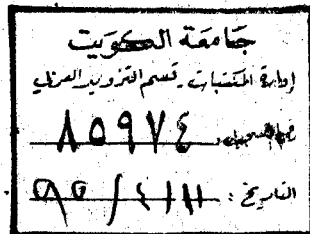 جامعة الكويت
إدارة المكتبات - قسم التزويد العربي
رقم التسجيل ٨٥٩٧٤
التاريخ: